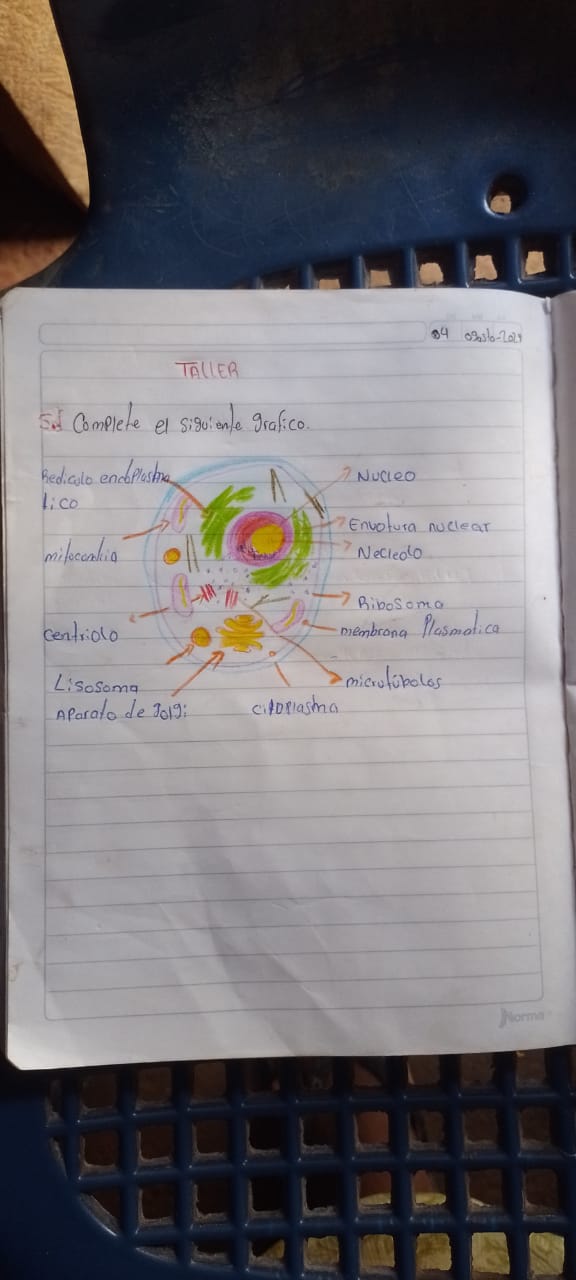 04 agosto-2024
TALLER
5. Complete el siguiente grafico.
Rediculo endoplasma
tico
Nucleo
Envoltura nuclear
mitocondia
Necleolo
Ribosoma
centriolo
membrana Plasmatica
Lisosoma
microtúbolos
Aparato de golgi
citoplasma
Norma